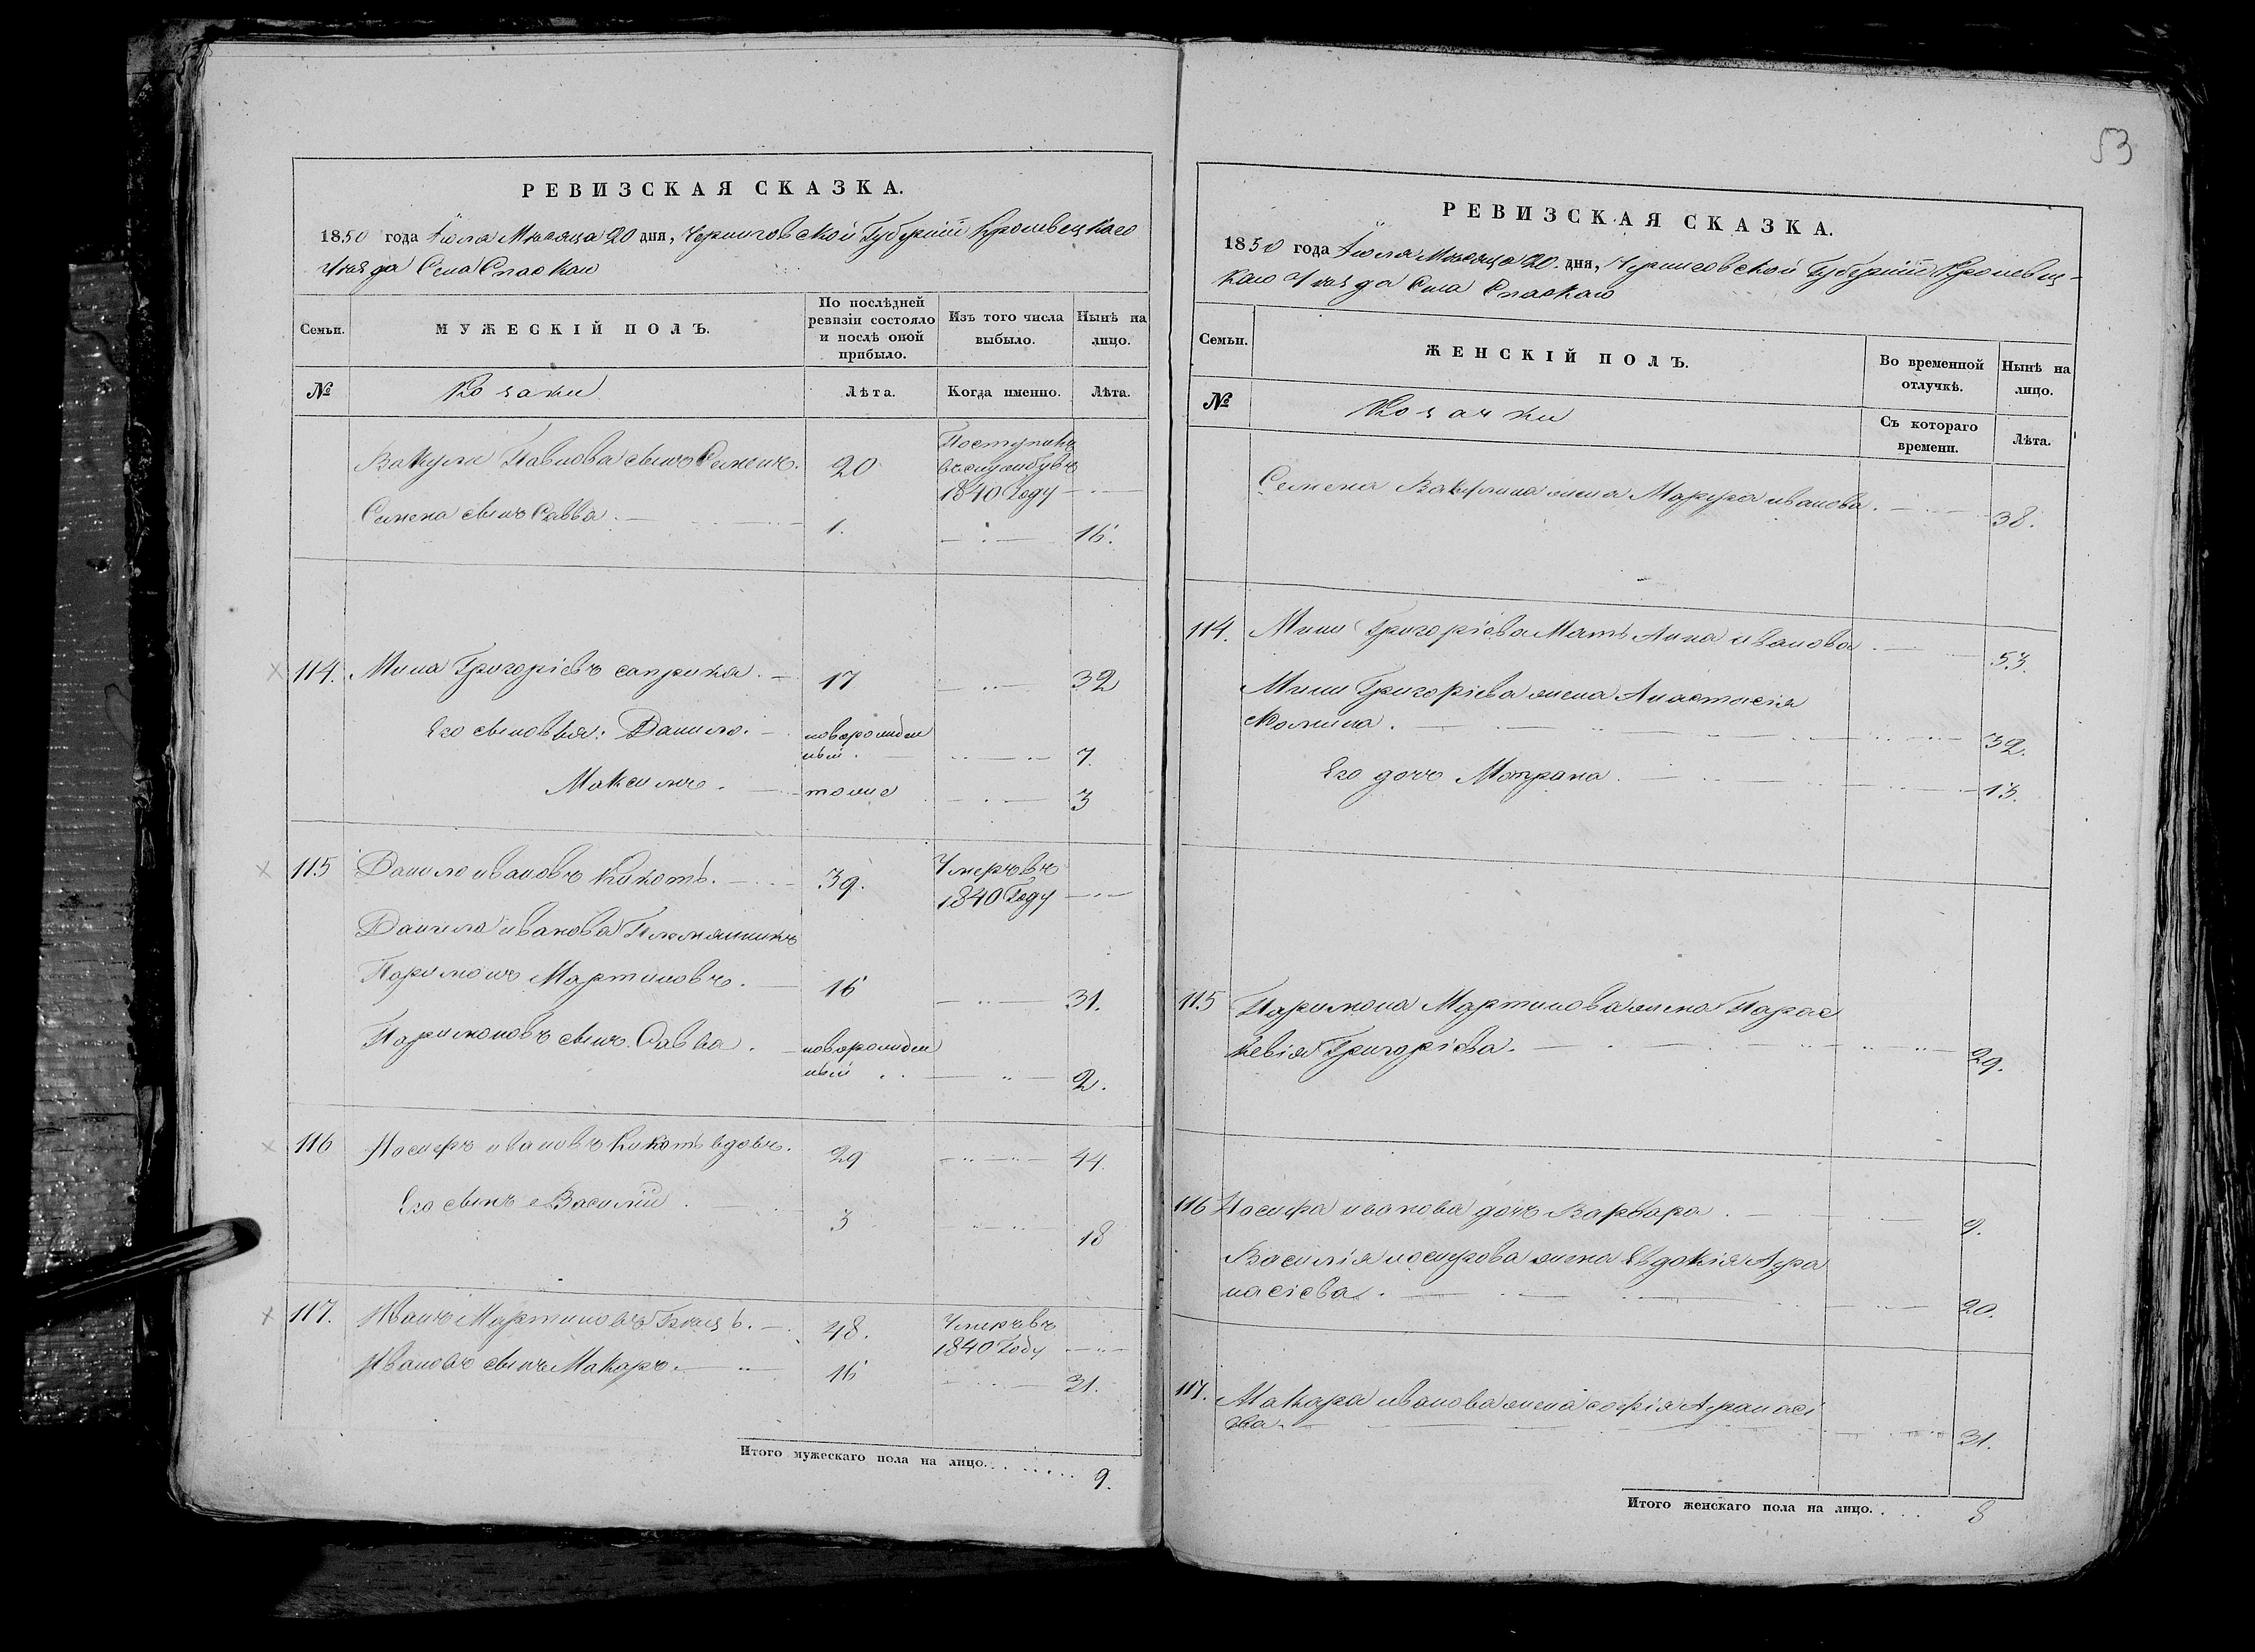 53
РЕВИЗСКАЯ СКАЗКА.
1850 года Іюля Мѣсяца 20 дня, Черниговской Губерніи Кролевецкаго
Уѣзда Села Спаскаго
Семьи. МУЖЕСКІЙ ПОЛЪ. По послѣдней ревизіи состояло и послѣ оной прибыло. Изъ того числа выбыло. Нынѣ на лицо.
№ Козаки Лѣта. Когда именно. Лѣта.
Вакули Павлова сынъ Семенъ. 20 Поступилъ
въ службу въ
1840 Году
Семена сынъ Савва. 1. 16.
114. Мина Григоріевъ 17 32
Его сыновья: Данило. новорожден
ный. 7.
Максимъ. тоже 3
115 Данило Ивановъ Кикоть. 39. Умеръ въ
1840 Году
Данила Иванова Племянникъ
Паримонъ Мартиновъ. 16 31.
Паримоновъ сынъ Савва. новорожден
ный 2.
116 Іосифъ Ивановъ Кикоть вдовъ. 29 44.
Его сынъ Василій 3 18
117. Иванъ Мартиновъ 48. Умеръ въ
1840 Году
Ивановъ сынъ Макаръ. 16 31.
Итого мужескаго пола на лицо. 9.
РЕВИЗСКАЯ СКАЗКА.
1850 года Іюля Мѣсяца 20 дня, Черниговской Губерніи Кролевец-
каго Уѣзда Села Спаскаго
Семьи. ЖЕНСКІЙ ПОЛЪ. Во временной отлучкѣ. Нынѣ на лицо.
№ Козачки Съ котораго времени. Лѣта.
Семена Вакулина жена Марфа Иванова. 38.
114. Мины Григоріева Мать Анна Иванова. 53.
Мины Григоріева жена Анастасія
32.
Его дочь Мотрона. 13.
115 Паримона Мартинова жена Парас
кевія Григоріева. 29.
116 Іосифа Иванова дочь Варвара. 9.
Василія Іосифова жена Евдокія Афа
насіева. 20.
117. Макара Иванова жена Софія Афанасі
ева. 31.
Итого женскаго пола на лицо. 8